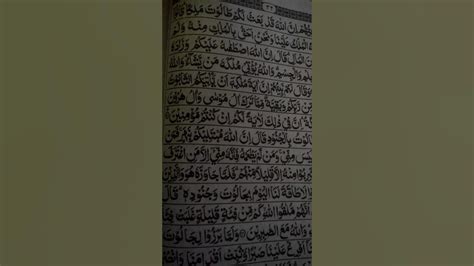 اِنَّ اللّٰهَ قَدْ بَعَثَ لَكُمْ طَالُوْتَ مَلِكًا قَالُوْۤا
الْمُلْكُ عَلَيْنَا وَنَحْنُ اَحَقُّ بِالْمُلْكِ مِنْهُ وَلَمْ
الْمَالِ قَالَ اِنَّ اللّٰهَ اصْطَفٰىهُ عَلَيْكُمْ وَزَادَهٗ
وَالْجِسْمِ وَاللّٰهُ يُؤْتِيْ مُلْكَهٗ مَنْ يَّشَآءُ وَاللّٰهُ
وَقَالَ لَهُمْ اِنَّ اٰيَةَ مُلْكِهٖۤ اَنْ يَّاْتِيَكُمُ التَّابُوْتُ
مِّنْ رَّبِّكُمْ وَبَقِيَّةٌ مِّمَّا تَرَكَ اٰلُ مُوْسٰى وَاٰلُ هٰرُوْنَ
اِنَّ فِيْ ذٰلِكَ لَاٰيَةً لَّكُمْ اِنْ كُنْتُمْ مُّؤْمِنِيْنَ
طَالُوْتُ بِالْجُنُوْدِ قَالَ اِنَّ اللّٰهَ مُبْتَلِيْكُمْ بِنَهَرٍ فَمَنْ
مِنِّيْ وَمَنْ لَّمْ يَطْعَمْهُ فَاِنَّهٗ مِنِّيْۤ اِلَّا مَنِ اغْتَرَفَ
مِنْهُ اِلَّا قَلِيْلًا مِّنْهُمْ فَلَمَّا جَاوَزَهٗ هُوَ وَالَّذِيْنَ
لَا طَاقَةَ لَنَا الْيَوْمَ بِجَالُوْتَ وَجُنُوْدِهٖ قَالَ
اَنَّهُمْ مُّلٰقُوا اللّٰهِ كَمْ مِّنْ فِئَةٍ قَلِيْلَةٍ غَلَبَتْ فِئَةً
وَاللّٰهُ مَعَ الصّٰبِرِيْنَ وَلَمَّا بَرَزُوْا لِجَالُوْتَ
اَفْرِغْ عَلَيْنَا صَبْرًا وَّثَبِّتْ اَقْدَامَنَا